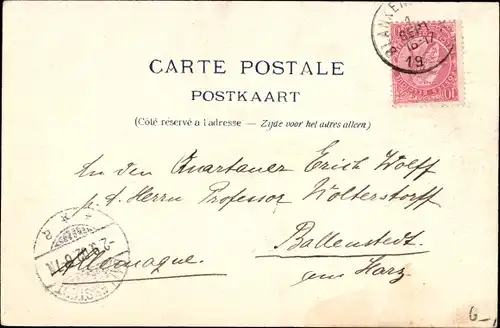 CARTE POSTALE
POSTKAART
(Côté réservé a l'adresse — Zijde voor het adres alleen)
An den Quartaner Erich Wolff
p. A. Herrn Professor Wolterstorff
Ballenstedt.
am Harz
Allemagne.
BLANKEN
SEPT
16-17
19
G-